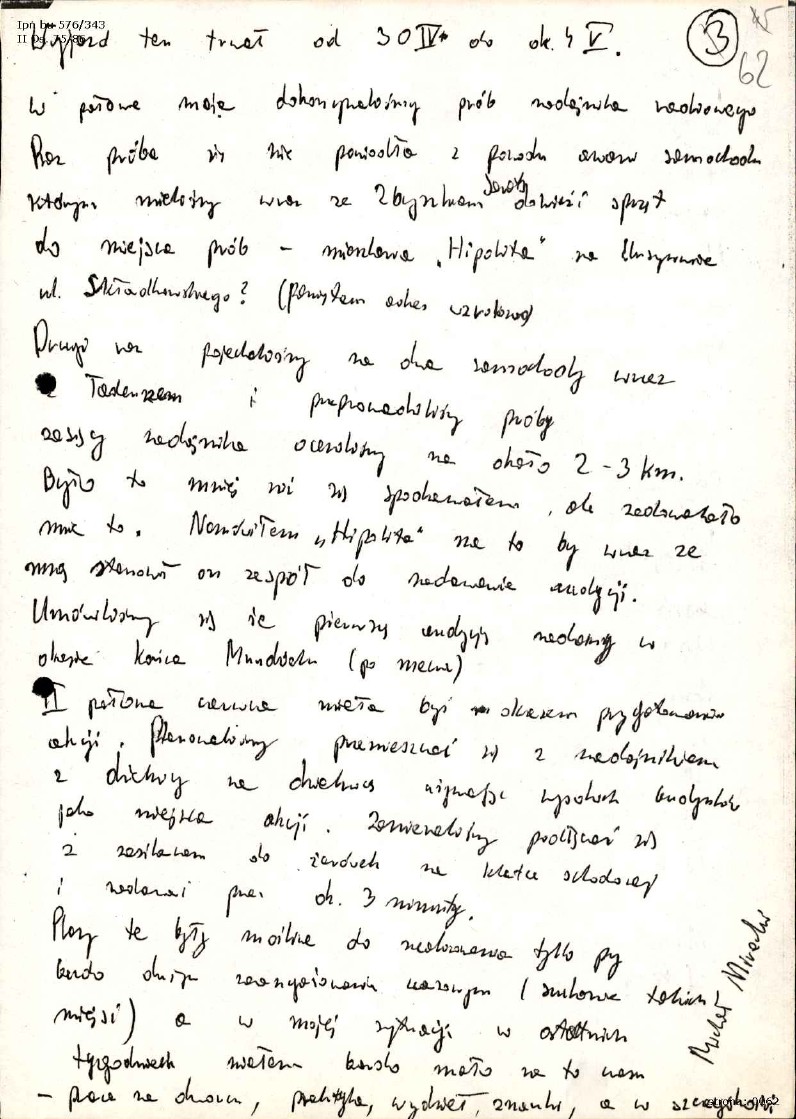 Ipn bu 576/343
II Ds. 75/86
Wyjazd ten trwał od 30 IV do ok. 4 V.
3
62
W połowie maja dokonywaliśmy prób nadajnika radiowego
Raz próba się nie powiodła z powodu awarii samochodu
którym mieliśmy wraz ze Zbyszkiem dowieźć sprzęt
do miejsca prób – mieszkania „Hipolita" na Ursynowie
ul. Składkowskiego? (Pamiętam adres wzrokowo)
Drugi raz pojechaliśmy na dwa samochody wraz
z Tadeuszem i przeprowadziliśmy próby
zasięg nadajnika oceniliśmy na około 2-3 km.
Było to mniej niż się spodziewałem, ale zadowalało
mnie to. Namówiłem „Hipolita" na to by wraz ze
mną stanowił on zespół do nadawania audycji.
Umówiliśmy się że pierwszą audycję nadamy w
okresie końca Mundialu (po meczu)
II połowa czerwca miała być okresem przygotowań
akcji. Planowaliśmy przemieszczać się z nadajnikiem
z dzielnicy na dzielnicę używając wysokich budynków
jako miejsca akcji. Zamierzaliśmy podłączać się
z zasilaniem do żarówek na klatce schodowej
i nadawać przez ok. 3 minuty.
Plany te były możliwe do zrealizowania tylko przy
bardzo dużym zaangażowaniu czasowym (szukanie takich
miejsc) a w mojej sytuacji w ostatnich
tygodniach miałem bardzo mało na to czasu
– praca na dworcu, praktyka, wydział, znaczki, a w szczególności